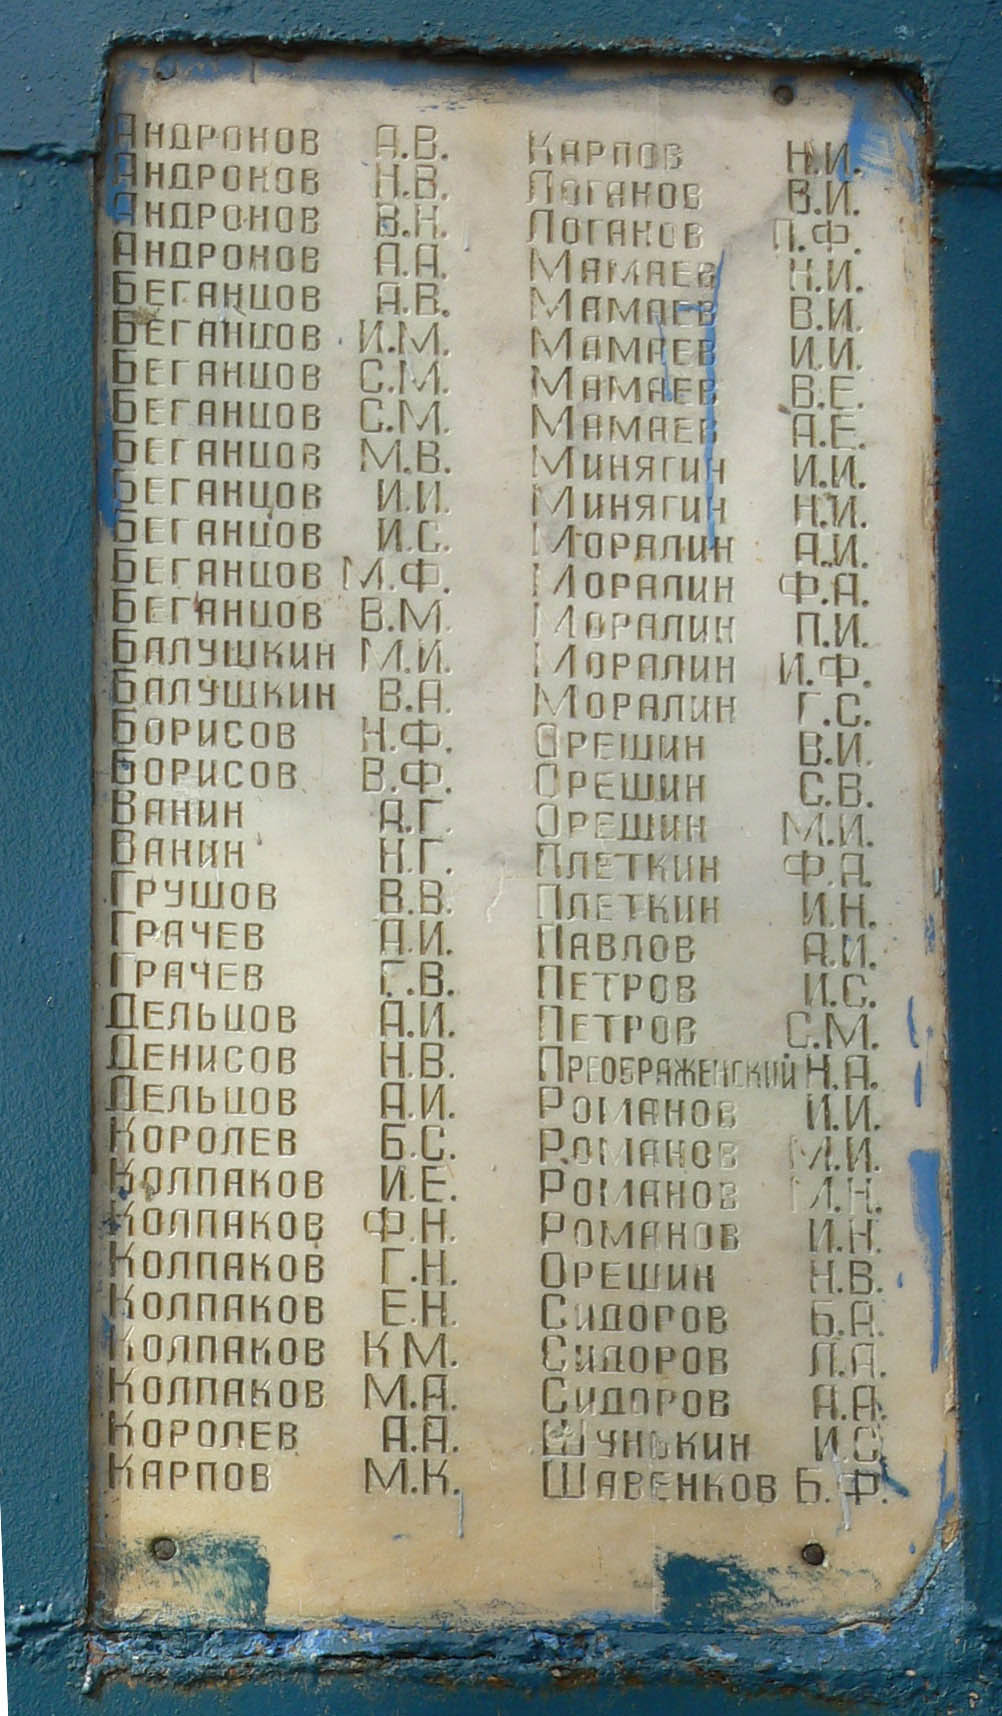 Андронов А.В.
Андронов Н.В.
Андронов В.Н.
Андронов А.А.
Беганцов А.В.
Беганцов И.М.
Беганцов С.М.
Беганцов С.М.
Беганцов М.В.
Беганцов И.И.
Беганцов И.С.
Беганцов М.Ф.
Беганцов В.М.
Балушкин М.И.
Балушкин В.А.
Борисов Н.Ф.
Борисов В.Ф.
Ванин А.Г.
Ванин Н.Г.
Грушов В.В.
Грачев А.И.
Грачев Г.В.
Дельцов А.И.
Денисов Н.В.
Дельцов А.И.
Королев Б.С.
Колпаков И.Е.
Колпаков Ф.Н.
Колпаков Г.Н.
Колпаков Е.Н.
Колпаков К М.
Колпаков М.А.
Королев А.А.
Карпов М.К.
Карпов Н.И.
Логанов В.И.
Логанов П.Ф.
Мамаев Н.И.
Мамаев В.И.
Мамаев И.И.
Мамаев В.Е.
Мамаев А.Е.
Минягин И.И.
Минягин Н.И.
Моралин А.И.
Моралин Ф.А.
Моралин П.И.
Моралин И.Ф.
Моралин Г.С.
Орешин В.И.
Орешин С.В.
Орешин М.И.
Плеткин Ф.А.
Плеткин И.Н.
Павлов А.И.
Петров И.С.
Петров С.М.
Преображенский Н.А.
Романов И.И.
Романов М.И.
Романов М.Н.
Романов И.Н.
Орешин Н.В.
Сидоров Б.А.
Сидоров Л.А.
Сидоров А.А.
Шунькин И.С
Шавенков Б.Ф.